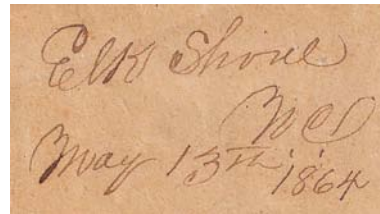 Elk Shoal
N C
May 13th 1864